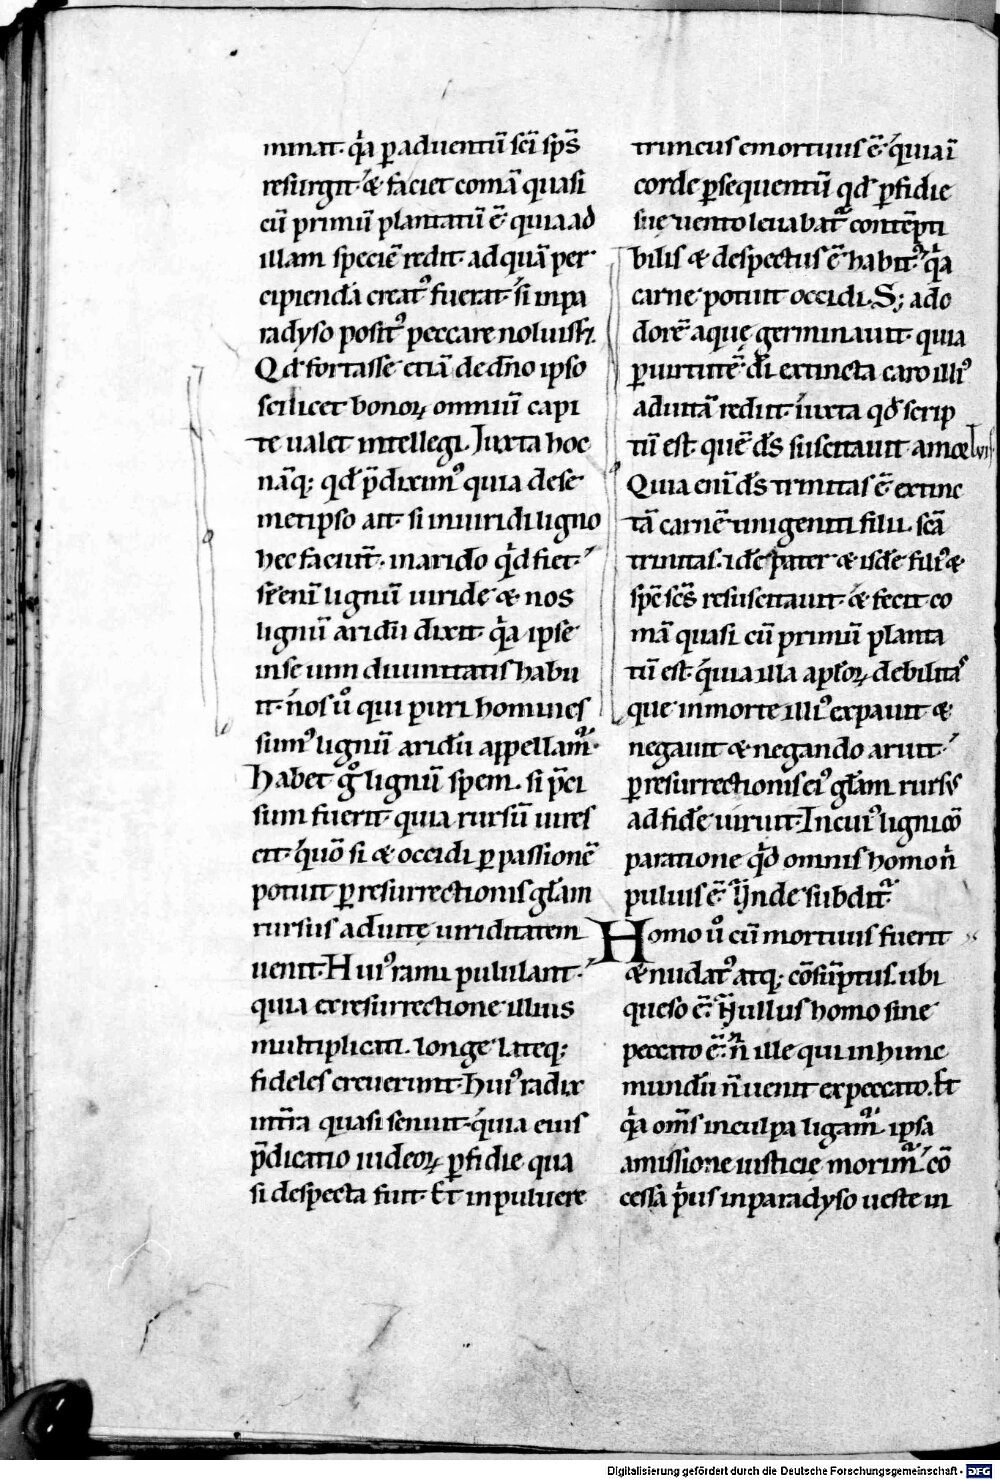 minat. q̇a p̱ aduentū sc̄i sp̄s
resurgit. & faciet comā quasi
cū primū plantatū ē. quia ad
illam speciē redit. ad quā per
cipiendā creat᷒ fuerat. si in pa
radyso posit᷒ peccare noluiss&.
Qd̄ fortasse etiā de dn̄o ipso
scilicet bonoꝝ omniū capi
te ualet intellegi. Juxta hoc
nāq; qd̄ p̄diximus quia de se
metipso ait. si in uiridi ligno
hec faciunt̄. in arido q̇d fiet.
Se enī lignū uiride & nos
lignū aridū dixit. q̇a ipse
in se uim diuinitatis habu
it. nos ů qui puri homines
sum᷒ lignū aridū appellam᷒.
Habet g̊ lignū spem. si p̄ci
sum fuerit. quia rursū uires
cit. quō si & occidi p̱ passionē
potuit p̱ resurrectionis gl̄am
rursus ad uite uiriditatem
uenit. Hui᷒ rami pululant.
quia ex resurrectione illius
multiplicati. longe lateq;
fideles creuerunt. Hui᷒ radix
in t̄ra quasi senuit. quia eius
p̄dicatio iudeoꝝ p̱fidie qua
si despecta fuit. Et in puluere
truncus emortuus ē. quia ī
corde p̱sequentiū qd̄ p̱fidie
sue uento leuabat᷒ contēpti
bilis & despectus ē habit᷒. q̇a
carne potuit occidi. S; ad o
dorē aque germinauit. quia
p̱ uirtutē dī extincta caro illi᷒
ad uitā rediit. iuxta qd̄ scrip
tū est. quē ds̄ suscitauit a mor
Quia enī ds̄ trinitas ē extinc
tā carnē unigeniti filii. sc̄a
trinitas. idē pater & isdē fili᷒ &
sp̄c sc̄s resuscitauit. & fecit co
mā quasi cū primū planta
tū est. quia illa apl̄oꝝ debilitas
que in morte illi᷒ expauit &
negauit & negando aruit.
p̱ resurrectionis ei᷒ gl̄am rursus
ad fidē uiruit. In cui᷒ ligni cō
paratione q̇d omnis homo n̄
puluis ē. Unde subdit᷒.
Homo ů cū mortuus fuerit
& nudat᷒ atq; cōsūptus. ubi
queso ē. Nullus homo sine
peccato ē. n̄ ille qui in hunc
mundū n̄ uenit ex peccato. Et
q̇a om̄s in culpa ligam᷒. ipsa
amissione iusticie morim᷒. cō
cessa ṗus in paradyso ueste in